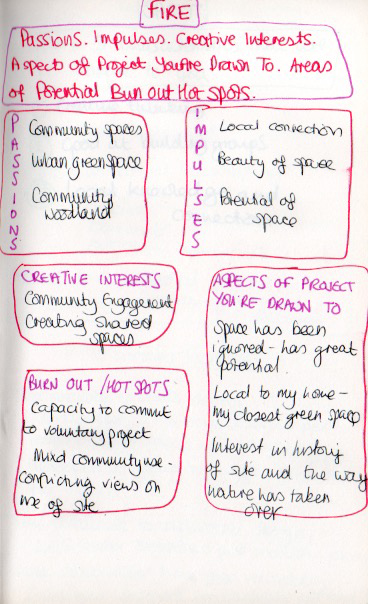 FIRE
Passions. Impulses. Creative Interests.
Aspects of Project You're Drawn To. Areas
of Potential Burn out Hot Spots.
PASSIONS
Community spaces
Urban green space
Community
woodland
IMPULSES
Local connection
Beauty of space
Potential of
space
CREATIVE INTERESTS
Community Engagement
Creating shared
spaces
BURN OUT / HOT SPOTS
Capacity to commit
to voluntary project
Mixed community use -
conflicting views on
use of site
ASPECTS OF PROJECT
YOU'RE DRAWN TO
Space has been
ignored - has great
potential.
Local to my home -
my closest green space
Interest in history
of site and the way
nature has taken
over.